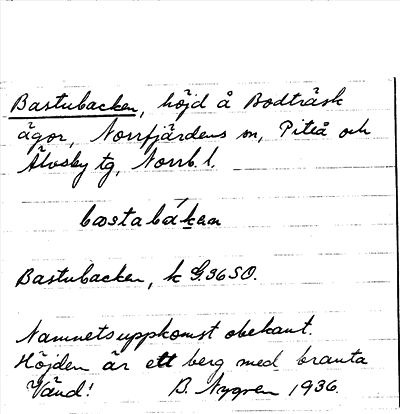 Bastubacken, höjd å Bodträsk
ägor, Norrfjärdens sn, Piteå och
Älvsby tg, Norrb. l.
bastabák̲en
Bastubacken, k G.36SO.
Namnets uppkomst obekant.
Höjden är ett berg med branta
Vänd! B. Nygren 1936.